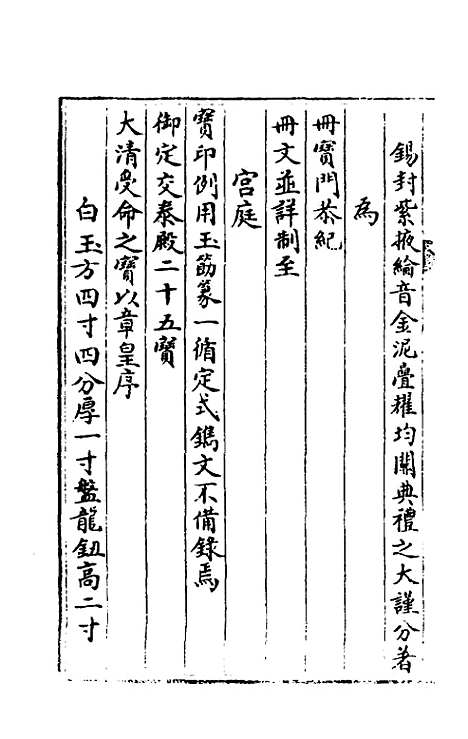 錫封紫掖綸音金泥疊耀均關典禮之大謹分著
為
冊寶門恭紀
冊文並詳制至
宮庭
寶印例用玉筯篆一循定式鐫文不備錄焉
御定交泰殿二十五寶
大清受命之寶以章皇序
白玉方四寸四分厚一寸盤龍鈕高二寸